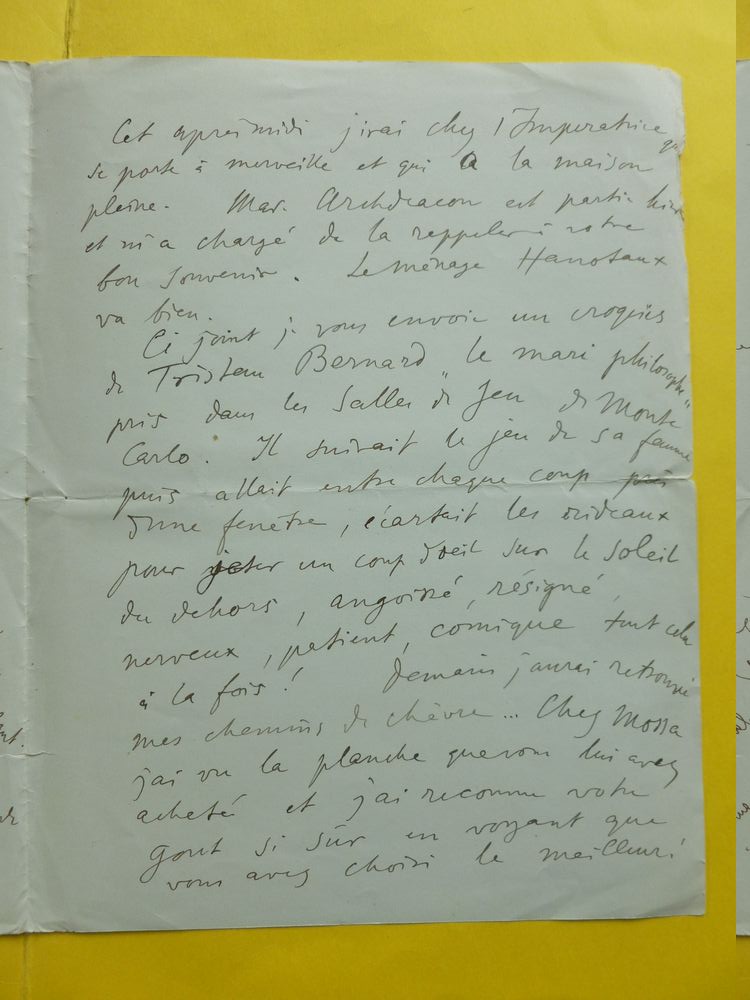 Cet après midi j'irai chez l'Imperatrice qui
se porte à merveille et qui a la maison
pleine. Mad. Archdeacon est partie hier
et m'a chargé de la rappeler à votre
bon souvenir. Le ménage Hanotaux
va bien.
Ci joint je vous envoie un croquis
de Tristan Bernard "le mari philosophe"
pris dans les Salles de Jeu de Monte
Carlo. Il suivait le jeu de sa femme
puis allait entre chaque coup près
d'une fenêtre, écartait les rideaux
pour jeter un coup d'oeil sur le Soleil
du dehors, angoissé, résigné,
nerveux, patient, comique tout cela
à la fois! Demain j'aurai retrouvé
mes chemins de chèvre... Chez Mossa
j'ai vu la planche que vous lui avez
acheté et j'ai reconnu votre
gout si sûr en voyant que
vous avez choisi le meilleur!